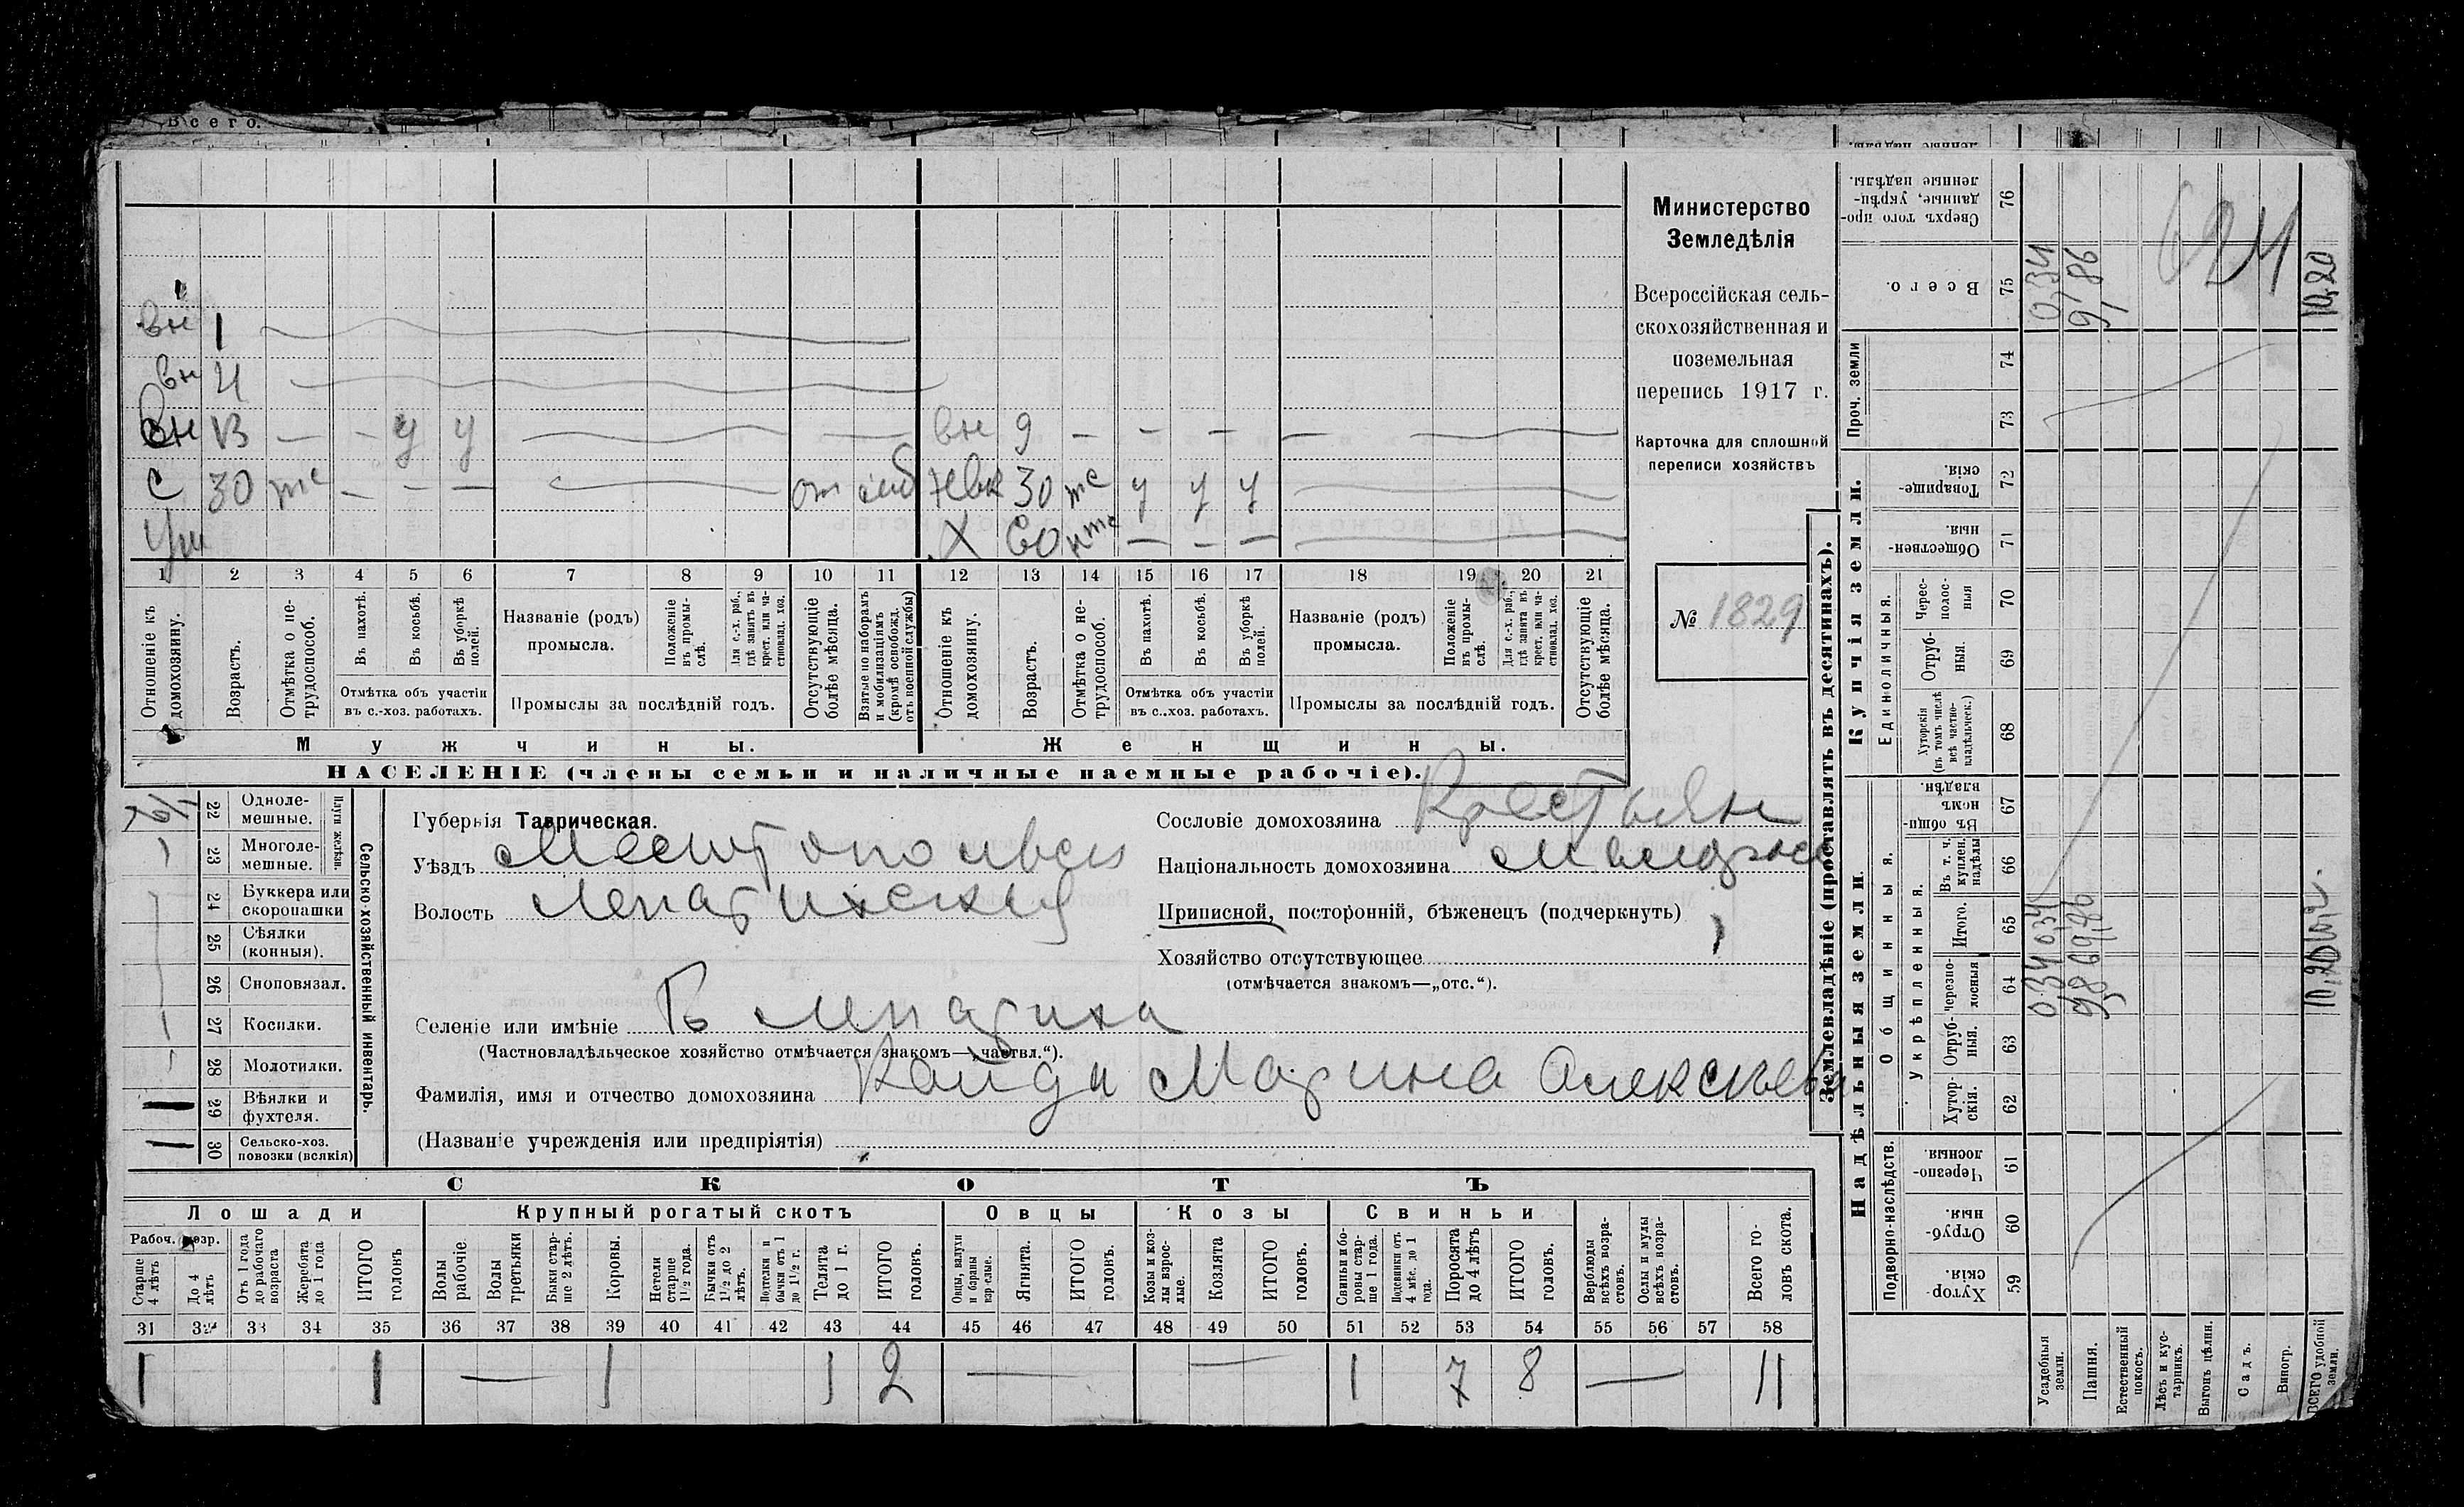 Всего.
вн 1
вн 4
вн 13 — - у у — — вн 9 - - - — —
с 30 — - — — от Нвк 30 у у у —
Ум Х 60 — - —
1 2 3 4 5 6 7 8 9 10 11 12 13 14 15 16 17 18 19 20 21
Отношеніе къ домохозяину.
Возрастъ.
Отмѣтка о не-
трудоспособ.
Въ пахотѣ.
Въ косьбѣ.
Въ уборкѣ полей.
Отмѣтка объ участіи
въ с.-хоз. работахъ.
Названіе (родъ)
промысла.
Положеніе въ промы-
слѣ.
Для с.-х. раб., гдѣ занятъ въ крест. или ча-
стновлад. хоз.
Промыслы за послѣдній годъ.
Отсутствующіе болѣе мѣсяца.
Взятые по наборамъ и мобилизаціямъ (кромѣ освобожд. отъ военной службы)
Отношеніе къ домохозяину.
Возрастъ.
Отмѣтка о не-
трудоспособ.
Въ пахотѣ.
Въ косьбѣ.
Въ уборкѣ полей.
Отмѣтка объ участіи
въ с..хоз. работахъ.
Названіе (родъ)
промысла.
Положеніе въ промы-
слѣ.
Для с.-х. раб., гдѣ занята въ крест. или ча-
стновлад. хоз.
Промыслы за послѣдній годъ.
Отсутствующіе болѣе мѣсяца.
Мужчины.
Женщины.
НАСЕЛЕНІЕ (члены семьи и наличные наемные рабочіе).
Министерство
Земледѣлія
Всероссійская сель-
скохозяйственная и
поземельная
перепись 1917 г.
Карточка для сплошной
переписи хозяйствъ
№ 1829
22 Одноле-
мешные.
23 Многоле-
мешные.
Плуги желѣзн.
24 Буккера или
скоропашки
25 Сѣялки
(конныя).
26 Сноповязал.
27 Косилки.
28 Молотилки.
29 Вѣялки и
фухтеля.
30 Сельско-хоз.
повозки (всякія)
Сельско-хозяйственный инвентарь.
Губернія Таврическая.
Уѣздъ Мелитопольск
Волость Лепатихская
Селеніе или имѣніе Б Лепатиха
(Частновладѣльческое хозяйство отмѣчается знакомъ—„частвл.“).
Фамилія, имя и отчество домохозяина Кайда Марина Алексѣева
(Названіе учрежденія или предпріятія)
Сословіе домохозяина Крестьян
Національность домохозяина Малорос
Приписной, посторонній, бѣженецъ (подчеркнуть)
Хозяйство отсутствующее
(отмѣчается знакомъ—„отс.“).
СКОТЪ
Лошади Крупный рогатый скотъ Овцы Козы Свиньи
Рабоч. возр.
Старше 4 лѣтъ
До 4 лѣтъ
Отъ 1 года до рабочаго возраста
Жеребята до 1 года
ИТОГО головъ
Волы рабочіе
Волы третьяки
Быки стар-
ше 2 лѣтъ.
Коровы.
Нетели старше 1½ года.
Бычки отъ 1½ до 2 лѣтъ.
Нотелки и бычки отъ 1 до 1½ г.
Телята до 1 г.
ИТОГО головъ.
Овцы, валухи и бараны взрослые.
Ягнята.
ИТОГО головъ.
Козы и коз-
лы взрос-
лые.
Козлята
ИТОГО головъ.
Свиньи и бо-
ровы стар-
ше 1 года.
Подсвинки отъ 4 мѣс. до 1 года.
Поросята до 4 лѣтъ
ИТОГО головъ.
Верблюды всѣхъ возра-
стовъ.
Ослы и мулы всѣхъ возра-
стовъ.
Всего го-
ловъ скота.
31 32 33 34 35 36 37 38 39 40 41 42 43 44 45 46 47 48 49 50 51 52 53 54 55 56 57 58
1 1 — 1 1 2 — — 1 7 8 — 11
Землевладѣніе (проставлять въ десятинахъ).
Купчія земли.
Надѣльныя земли.
Сверхъ того про-
данные, укрѣп-
ленные надѣлы. 76
Всего. 75
Проч. земли 74 73
Товарище-
скія. 72
Обществен-
ныя. 71
Единоличныя.
Черес-
полос-
ныя 70
Отруб-
ныя. 69
Хуторскія
(въ томъ числѣ
всѣ частно-
владѣльческ.) 68
Общинныя.
Въ общи-
номъ
владѣн. 67
Укрѣпленныя.
Въ т. ч.
куплен.
надѣлы 66
Итого. 65
черезпо-
лосныя 64
Отруб-
ныя. 63
Хутор-
скія. 62
Подворно-наслѣдств.
Черезпо-
лосныя. 61
Отруб-
ныя. 60
Хутор-
скія. 59
Усадебныя
земли.
Пашня.
Естественный
покосъ.
Лѣсъ и кус-
тарникъ.
Выгонъ цѣлин.
Садъ.
Виногр.
ВСЕГО удобной
земли.
0,34
9,86
10,20
0,34 0,34
9,86 9,86
10,20